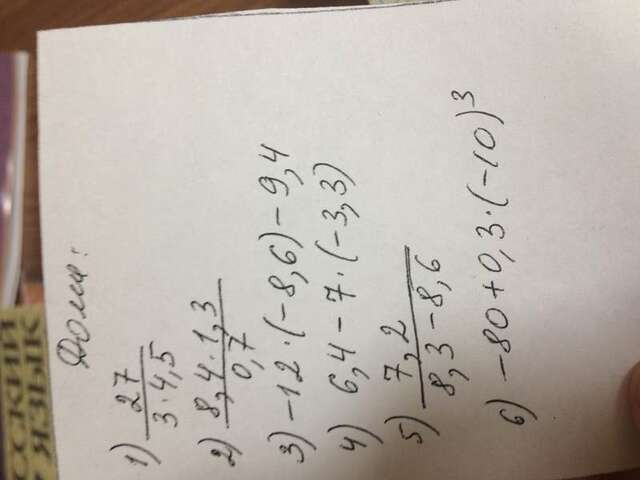 Дома:
1) 27 / 3·4,5
2) 8,4·1,3 / 0,7
3) -12·(-8,6)-9,4
4) 6,4-7·(-3,3)
5) 7,2 / 8,3-8,6
6) -80+0,3·(-10)³
ССКИЙ
ЯЗЫК